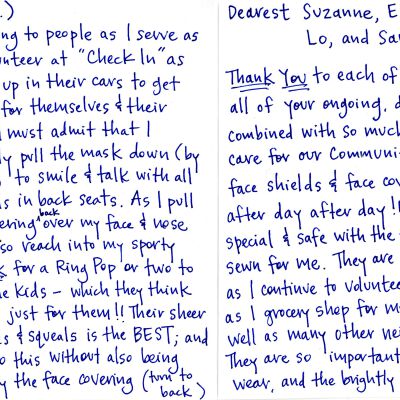 .)
ng to people as I serve as
unteer at "Check In" as
up in their cars to get
for themselves & their
must admit that I
ly pull the mask down (by
to smile & talk with all
s in back seats. As I pull
ering back over my face & nose
so reach into my sporty
for a Ring Pop or two to
e kids - which they think
just for them!! Their sheer
s & squeals is the BEST; and
o this without also being
y the face covering (turn to
back)
Dearest Suzanne, E
Lo, and Sa
Thank You to each of
all of your ongoing, d
combined with so much
care for our Communi
face shields & face cov
after day after day!!
special & safe with the
sewn for me. They are
as I continue to voluntee
as I grocery shop for m
well as many other nei
They are so important
wear, and the brightly